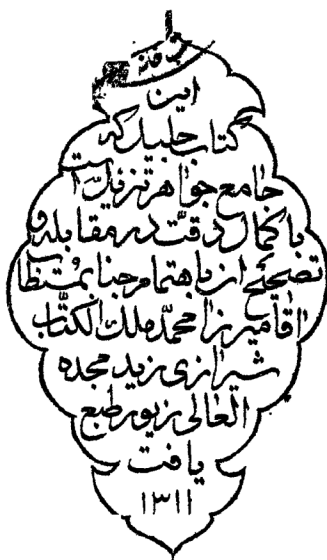 این
کتاب جلیل که
جامع جواهر تنزیل است
با کمال دقت در مقابله و
تصحیح از باهتمام جناب مستطاب
اقا میرزا محمد ملک الکتاب
شیرازی زید مجده
العالی زیور طبع
یافت
۱۳۱۱